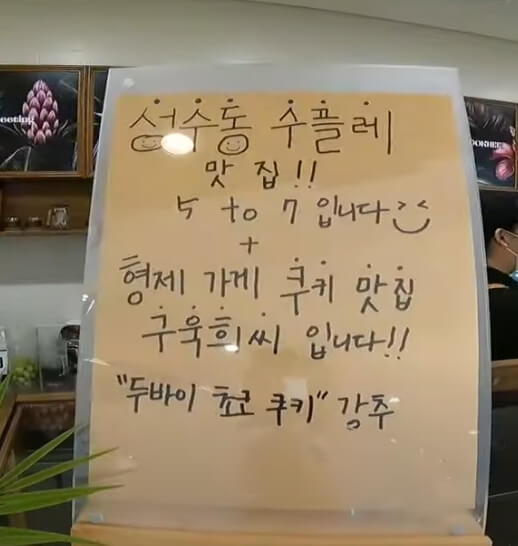 성수동 수플레
맛 집!!
5 to 7 입니다
+
형제 가게 쿠키 맛집
구욱희씨 입니다!!
"두바이 쵸코 쿠키" 강추